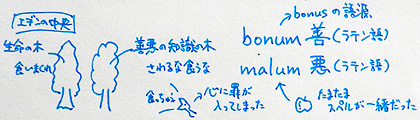 エデンの中央
生命の木
食いまくれ
善悪の知識の木
さわるな食うな
食っちゃう
心に罪が
入ってしまった
bonusの語源
bonum 善(ラテン語)
malum 悪(ラテン語)
たまたま
スペルが一緒だった